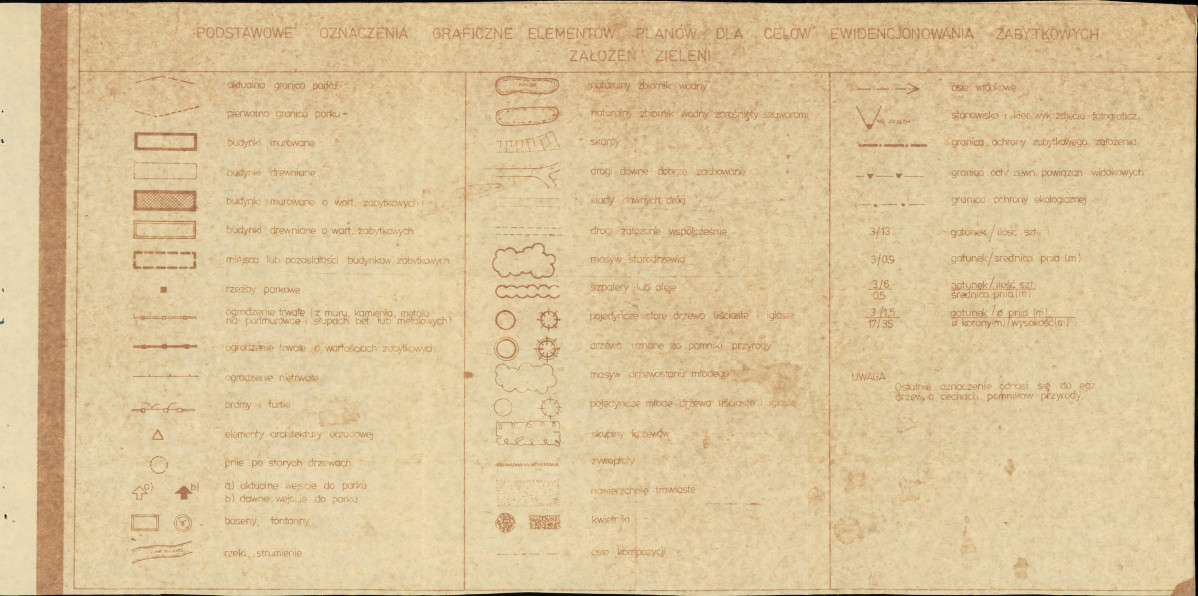 PODSTAWOWE OZNACZENIA GRAFICZNE ELEMENTÓW PLANÓW DLA CELÓW EWIDENCJONOWANIA ZABYTKOWYCH
ZAŁOŻEŃ ZIELENI
aktualna granica parku
pierwotna granica parku
budynki murowane
budynki drewniane
budynki murowane o wart. zabytkowych
budynki drewniane o wart. zabytkowych
miejsca lub pozostałości budynków zabytkowych
rzeźby parkowe
ogrodzenie trwałe (z muru, kamienia, metalu
na podmurówce i słupach bet. lub metalowych)
ogrodzenie trwałe o wartościach zabytkowych
ogrodzenie nietrwałe
bramy i furtki
elementy architektury ogrodowej
pnie po starych drzewach
a) b) a) aktualne wejście do parku
b) dawne wejście do parku
baseny, fontanny
rzeki, strumienie
naturalny zbiornik wodny
naturalny zbiornik wodny zarośnięty szuwarami
skarpy
drogi dawne dobrze zachowane
ślady dawnych dróg
drogi założenie współcześnie
masyw starodrzewia
szpalery lub aleje
pojedyncze stare drzewa liściaste i iglaste
drzewa uznane za pomniki przyrody
masyw drzewostanu młodego
pojedyncze młode drzewa liściaste i iglaste
skupiny krzewów
żywopłoty
nawierzchnie trawiaste
kwietniki
osie kompozycji
osie widokowe
stanowisko i kier. wyk. zdjęcia fotograficz.
granica ochrony zabytkowego założenia
granica ochr. zewn. powiązań widokowych
granica ochrony ekologicznej
3/13 gatunek/ilość szt.
3/0,9 gatunek/średnica pnia (m)
3/6 gatunek/ilość szt.
0,5 średnica pnia (m)
3/1,5 gatunek/ø pnia (m)
17/35 ø korony(m)/wysokość(m)
UWAGA
Ostatnie oznaczenie odnosi się do egz.
drzew o cechach pomników przyrody